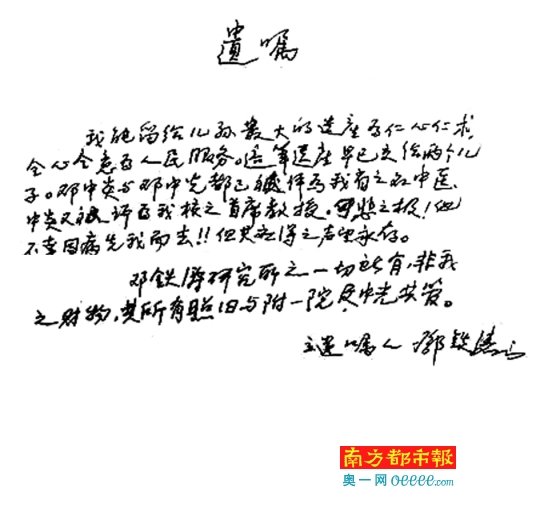 遺嘱
我能留给儿孙最大的遗产为仁心仁术,
全心全意为人民服务。这笔遗产早已交给两个儿
子。邓中炎与邓中光都已被评为我省之名中医,
中炎又被评为我校之首席教授。可悲之极!他
不幸因病先我而去!!但其所得之声望永存。
邓铁涛研究所之一切所有,非我
之财物,其所有照旧与附一院及中光共管。
立遗嘱人 邓铁涛
南方都市報
奥一网 oeeee.com